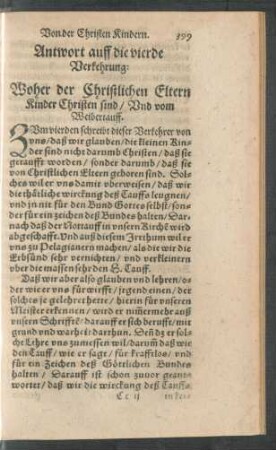 Von der Christen Kindern. 199
Antwort auff die vierde
Verkehrung:
Woher der Christlichen Eltern
Kinder Christen sind / Vnd vom
Weibertauff.
ZVm vierden schreibt dieser Verkehrer von
vns / daß wir glauben / die kleinen Kin-
der sind nicht darumb Christen / daß sie
getaufft worden / sonder darumb / daß sie
von Christlichen Eltern geboren sind. Sol-
ches wil er vns damit vberweisen / daß wir
die thätliche wirckung deß Tauffs leugnen /
vnd ja nit für den Bund Gottes selbst / son-
der für ein zeichen deß Bundes halten / Dar-
nach daß der Nottauff in vnsern Kirchē wird
abgeschafft. Vnd auß diesem Irrthum wil er
vns zu Pelagianern machen / als die wir die
Erbsünd sehr vernichten / vnd verkleinern
vber die massen sehr den H. Tauff.
Daß wir aber also glauben vnd lehren / os
der wie er vns für wirfft / jrgend einen / der
solches je gelehret hette / hierin für vnseren
Meister erkennen / wird er nimmermehr auß
vnsern Schrifftē / darauff er sich berufft / mit
grund vnd warheit darthun. Sendt er sol-
che Lehre vns zumessen wil / darum daß wir
den Tauff / wie er sagt / für krafftlos / vnd
für ein Zeichen deß Göttlichen Bundes
halten / Darauff ist schon zuvor geant-
wortet / daß wir die wirckung deß Tauffs
Cc ij